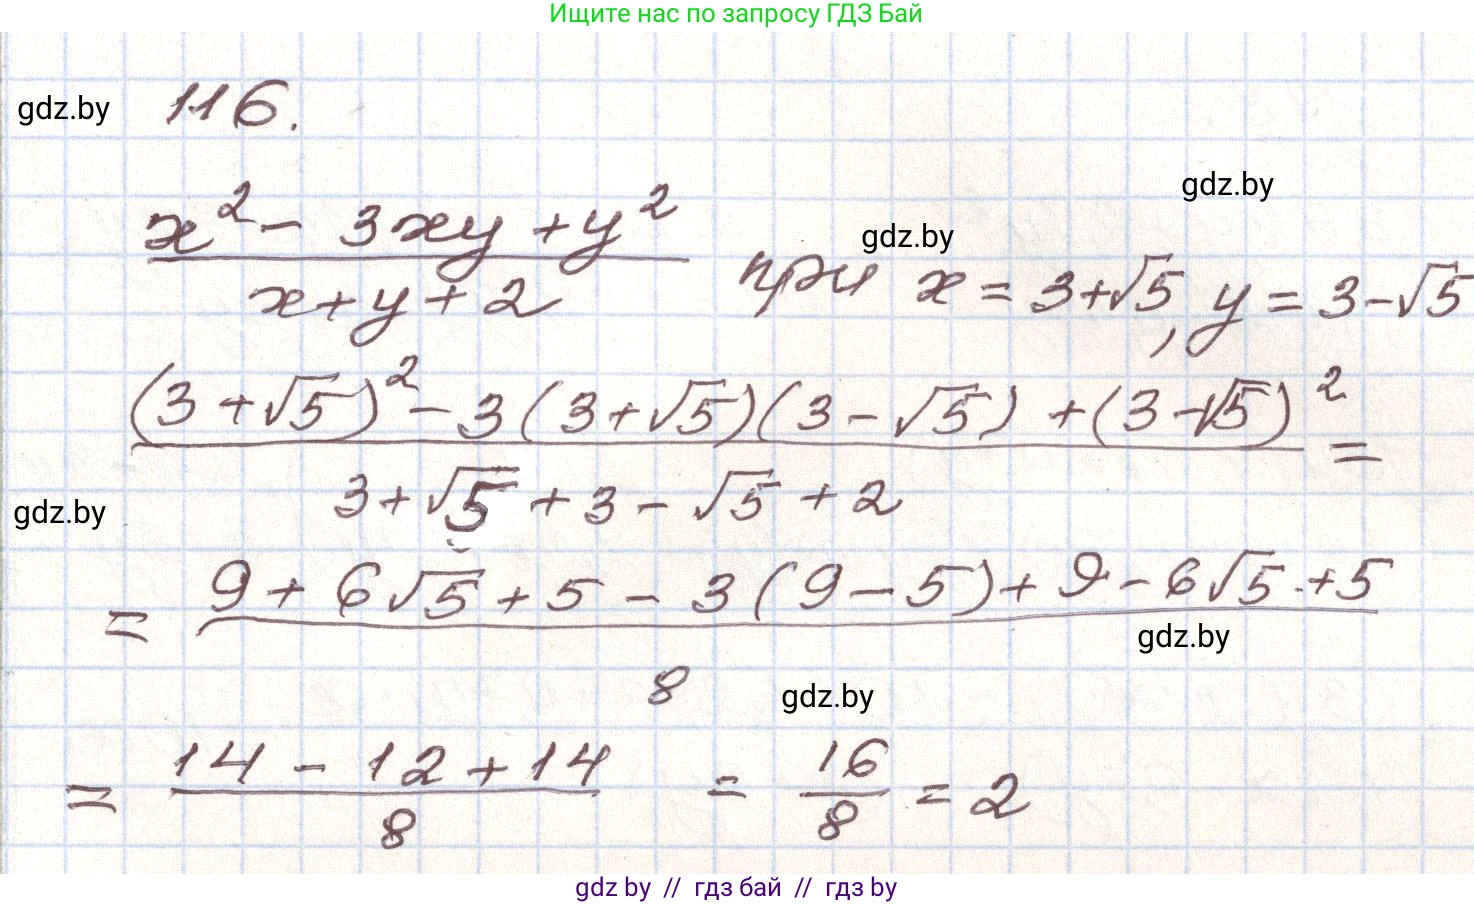 Ищите нас по запросу ГДЗ Бай
gdz.by
116.
gdz.by
x² - 3xy + y²
gdz.by
x + y + 2
при x = 3+√5, y = 3-√5
(3+√5)² - 3(3+√5)(3-√5) + (3-√5)² =
3+√5 + 3 - √5 + 2
gdz.by
= 9 + 6√5 + 5 - 3(9-5) + 9 - 6√5 + 5
gdz.by
8
gdz.by
= 14 - 12 + 14 = 16 = 2
8 8
gdz by // гдз бай // гдз by